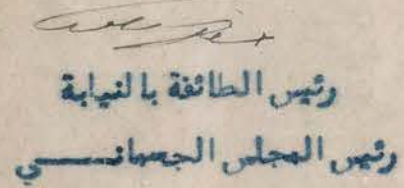 رئيس الطائفة بالنيابة
رئيس المجلس الجسمانـــــي